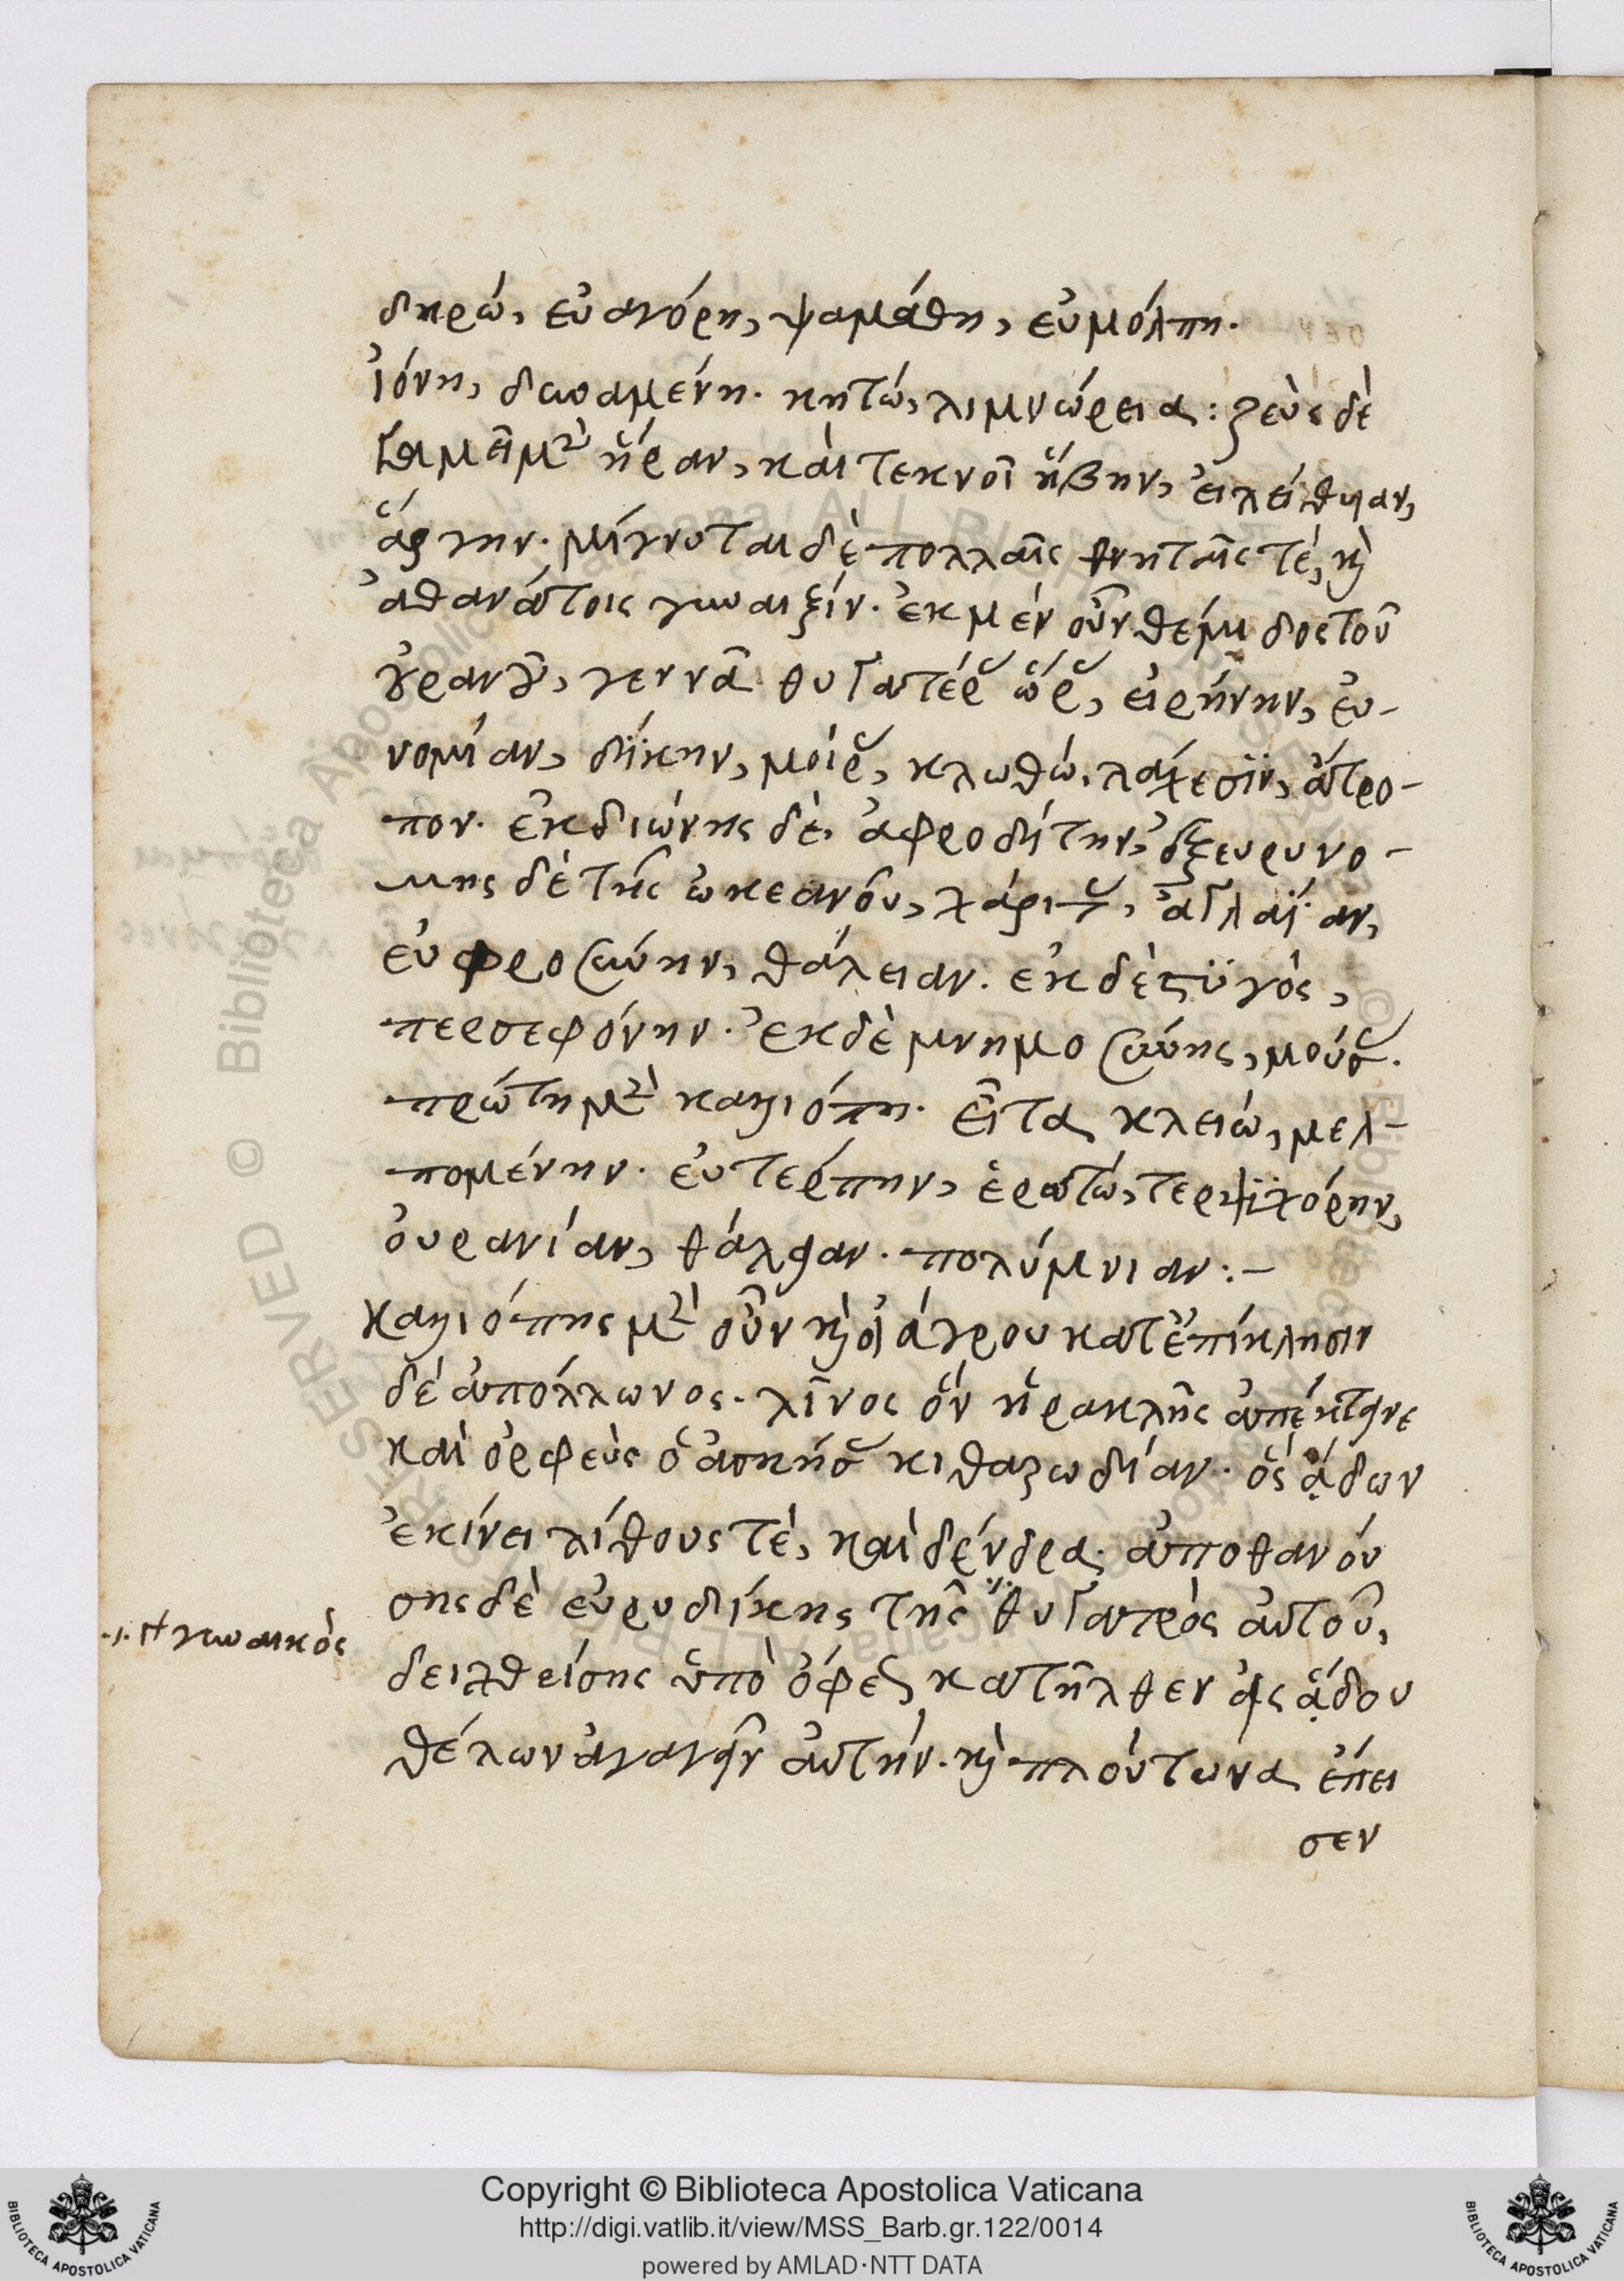 δηρώ, εὐαγόρη, ψαμάθη, εὐμόλπη.
ἰόνη, δυναμένη. κητώ, λιμνώρεια: ζεὺς δὲ
γαμεῖ μὲν ἥραν, καὶ τεκνοῖ ἥβην, εἰλείθυιαν,
ἄργην. μίγνυται δὲ πολλαῖς θνηταῖς τέ, καὶ
ἀθανάτοις γυναιξίν. ἐκ μὲν οὖν θέμιδος τοῦ
οὐρανοῦ, γεννᾶ θυγατέρας ὥρας, εἰρήνην, εὐ-
νομίαν, δίκην, μοίρας, κλωθώ, λάχεσϊν, ἄτρο-
πον. ἐκ διώνης δὲ, ἀφροδίτην, ἐξ ευρυνο-
μης δὲ τῆς ὠκεανοῦ, χάριτας, ἀγλαΐαν,
εὐφροσύνην, θάλειαν. ἐκ δὲ στϋγὸς,
περσεφόνην. ἐκ δὲ μνημοσύνης, μούσας.
πρώτη μὲν καλλιόπη. εἶτα κλειώ, μελ-
πομένην. εὐτέρπην, ἐρατώ, τερψϊχόρην,
οὐρανίαν, θάλειαν. πολύμνιαν:-
καλλιόπης μὲν οὖν καὶ οἰάγρου κατ' ἐπίκλησιν
δὲ ἀπόλλωνος. λῖνος ὃν ἡρακλῆς ἀπέκτεινε
καὶ ὀρφεὺς ὁ ἀσκήσας κιθαρωδίαν. ὃς ᾄδων
ἐκίνει λίθους τέ, καὶ δένδρα. ἀποθανού
σης δὲ εὐρυδίκης τῆς ⁜ θυγατρὸς αὐτοῦ,
·/. ἢ γυναικὸς
δειχθείσης ὑπὸ ὄφεως κατῆλθεν εἰς ᾅδου
θέλων ἀγαγεῖν αὐτήν. καὶ πλούτωνα ἔπει
σεν
Copyright © Biblioteca Apostolica Vaticana
http://digi.vatlib.it/view/MSS_Barb.gr.122/0014
powered by AMLAD·NTT DATA
BIBLIOTECA APOSTOLICA VATICANA
BIBLIOTECA APOSTOLICA VATICANA